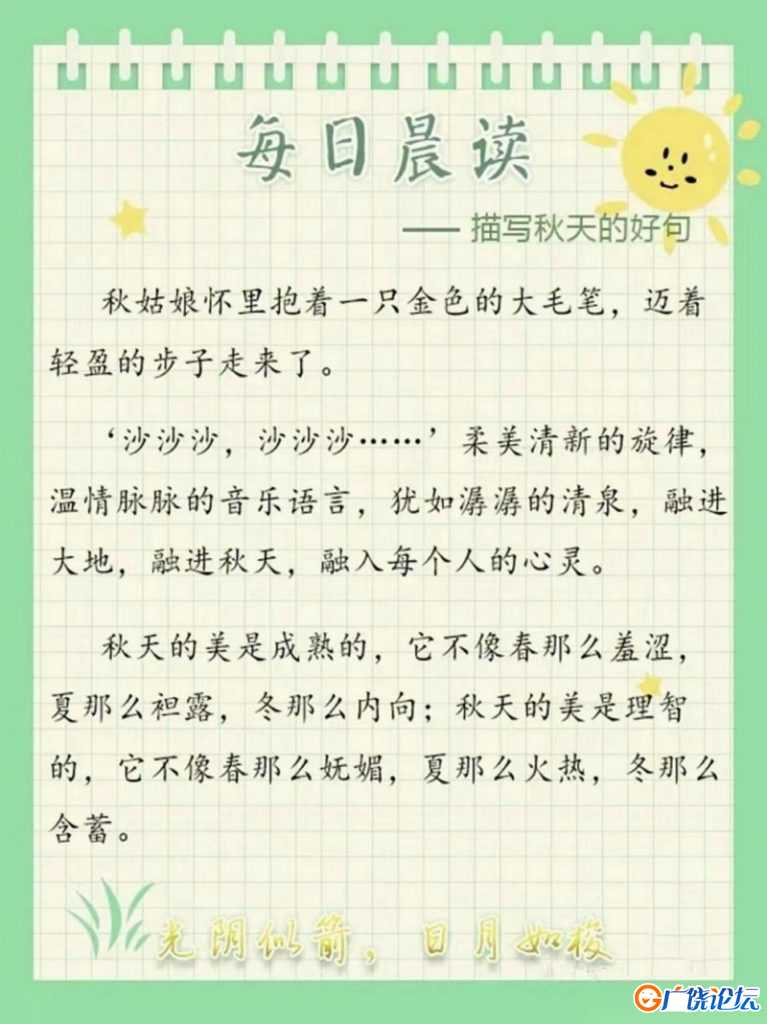 每日晨读
—— 描写秋天的好句
秋姑娘怀里抱着一只金色的大毛笔，迈着
轻盈的步子走来了。
‘沙沙沙，沙沙沙……’柔美清新的旋律，
温情脉脉的音乐语言，犹如潺潺的清泉，融进
大地，融进秋天，融入每个人的心灵。
秋天的美是成熟的，它不像春那么羞涩，
夏那么袒露，冬那么内向；秋天的美是理智
的，它不像春那么妩媚，夏那么火热，冬那么
含蓄。
光阴似箭，日月如梭
广饶论坛